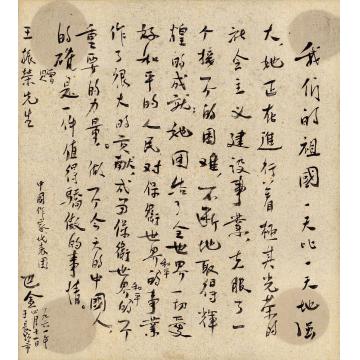 我们的祖國一天比一天地強
大,她正在進行着極其光荣的
社会主义建設事業,克服了一
个接一个的困难,不断地取得輝
煌的成就;她团结了全世界一切爱
好和平的人民对保衛世界和平的事業
作了很大的贡献,成为保衛世界和平的
重要的力量。做一个今天的中国人,
的確是一件值得驕傲的事情。
贈
王振荣先生
中國作家代表团
巴金
一九六一年
四月十一日
于